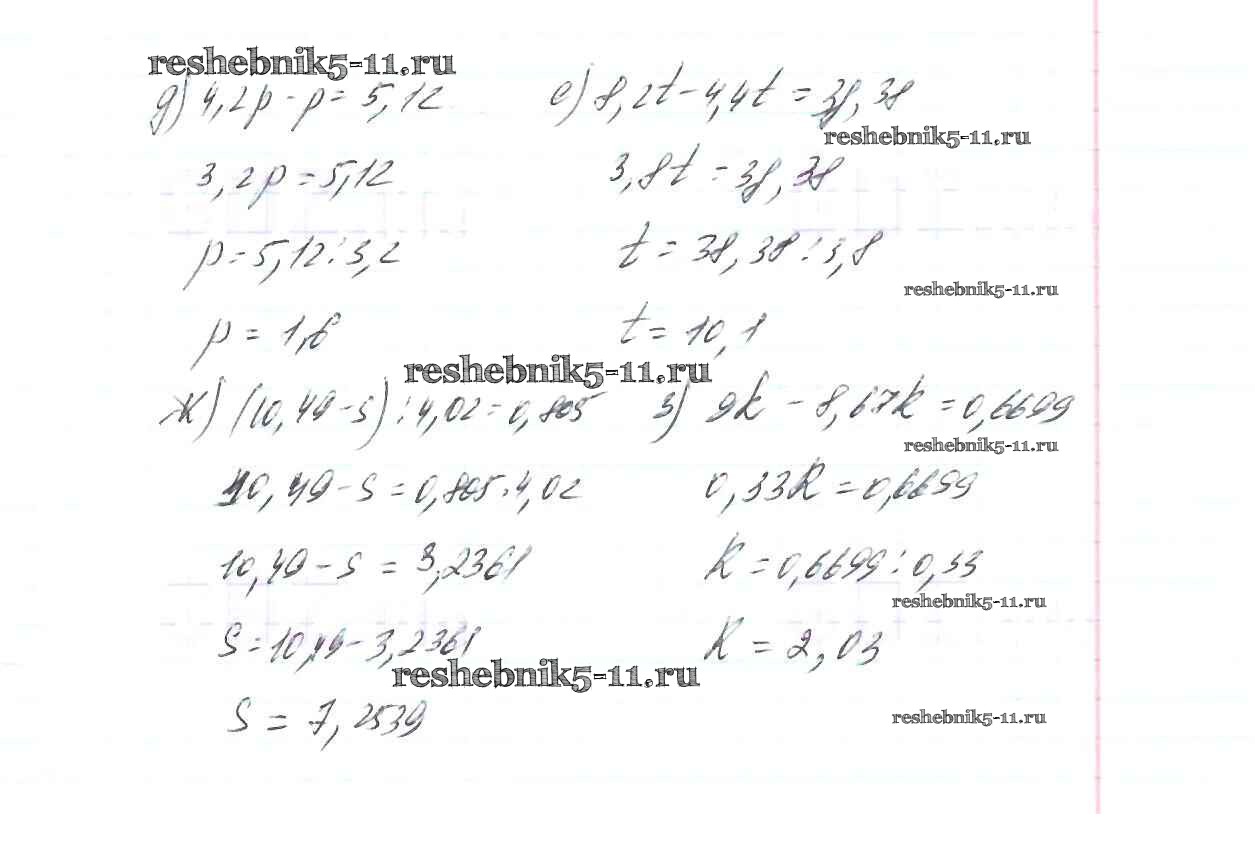 reshebnik5-11.ru
д) 4,2p - p = 5,12
е) 8,2t - 4,4t = 38,38
reshebnik5-11.ru
3,2p = 5,12
3,8t = 38,38
p = 5,12 : 3,2
t = 38,38 : 3,8
reshebnik5-11.ru
p = 1,6
t = 10,1
reshebnik5-11.ru
ж) (10,49 - s) : 4,02 = 0,805
з) 9k - 8,67k = 0,6699
reshebnik5-11.ru
10,49 - s = 0,805 · 4,02
0,33k = 0,6699
10,49 - s = 3,2361
k = 0,6699 : 0,33
reshebnik5-11.ru
s = 10,49 - 3,2361
k = 2,03
reshebnik5-11.ru
s = 7,2539
reshebnik5-11.ru